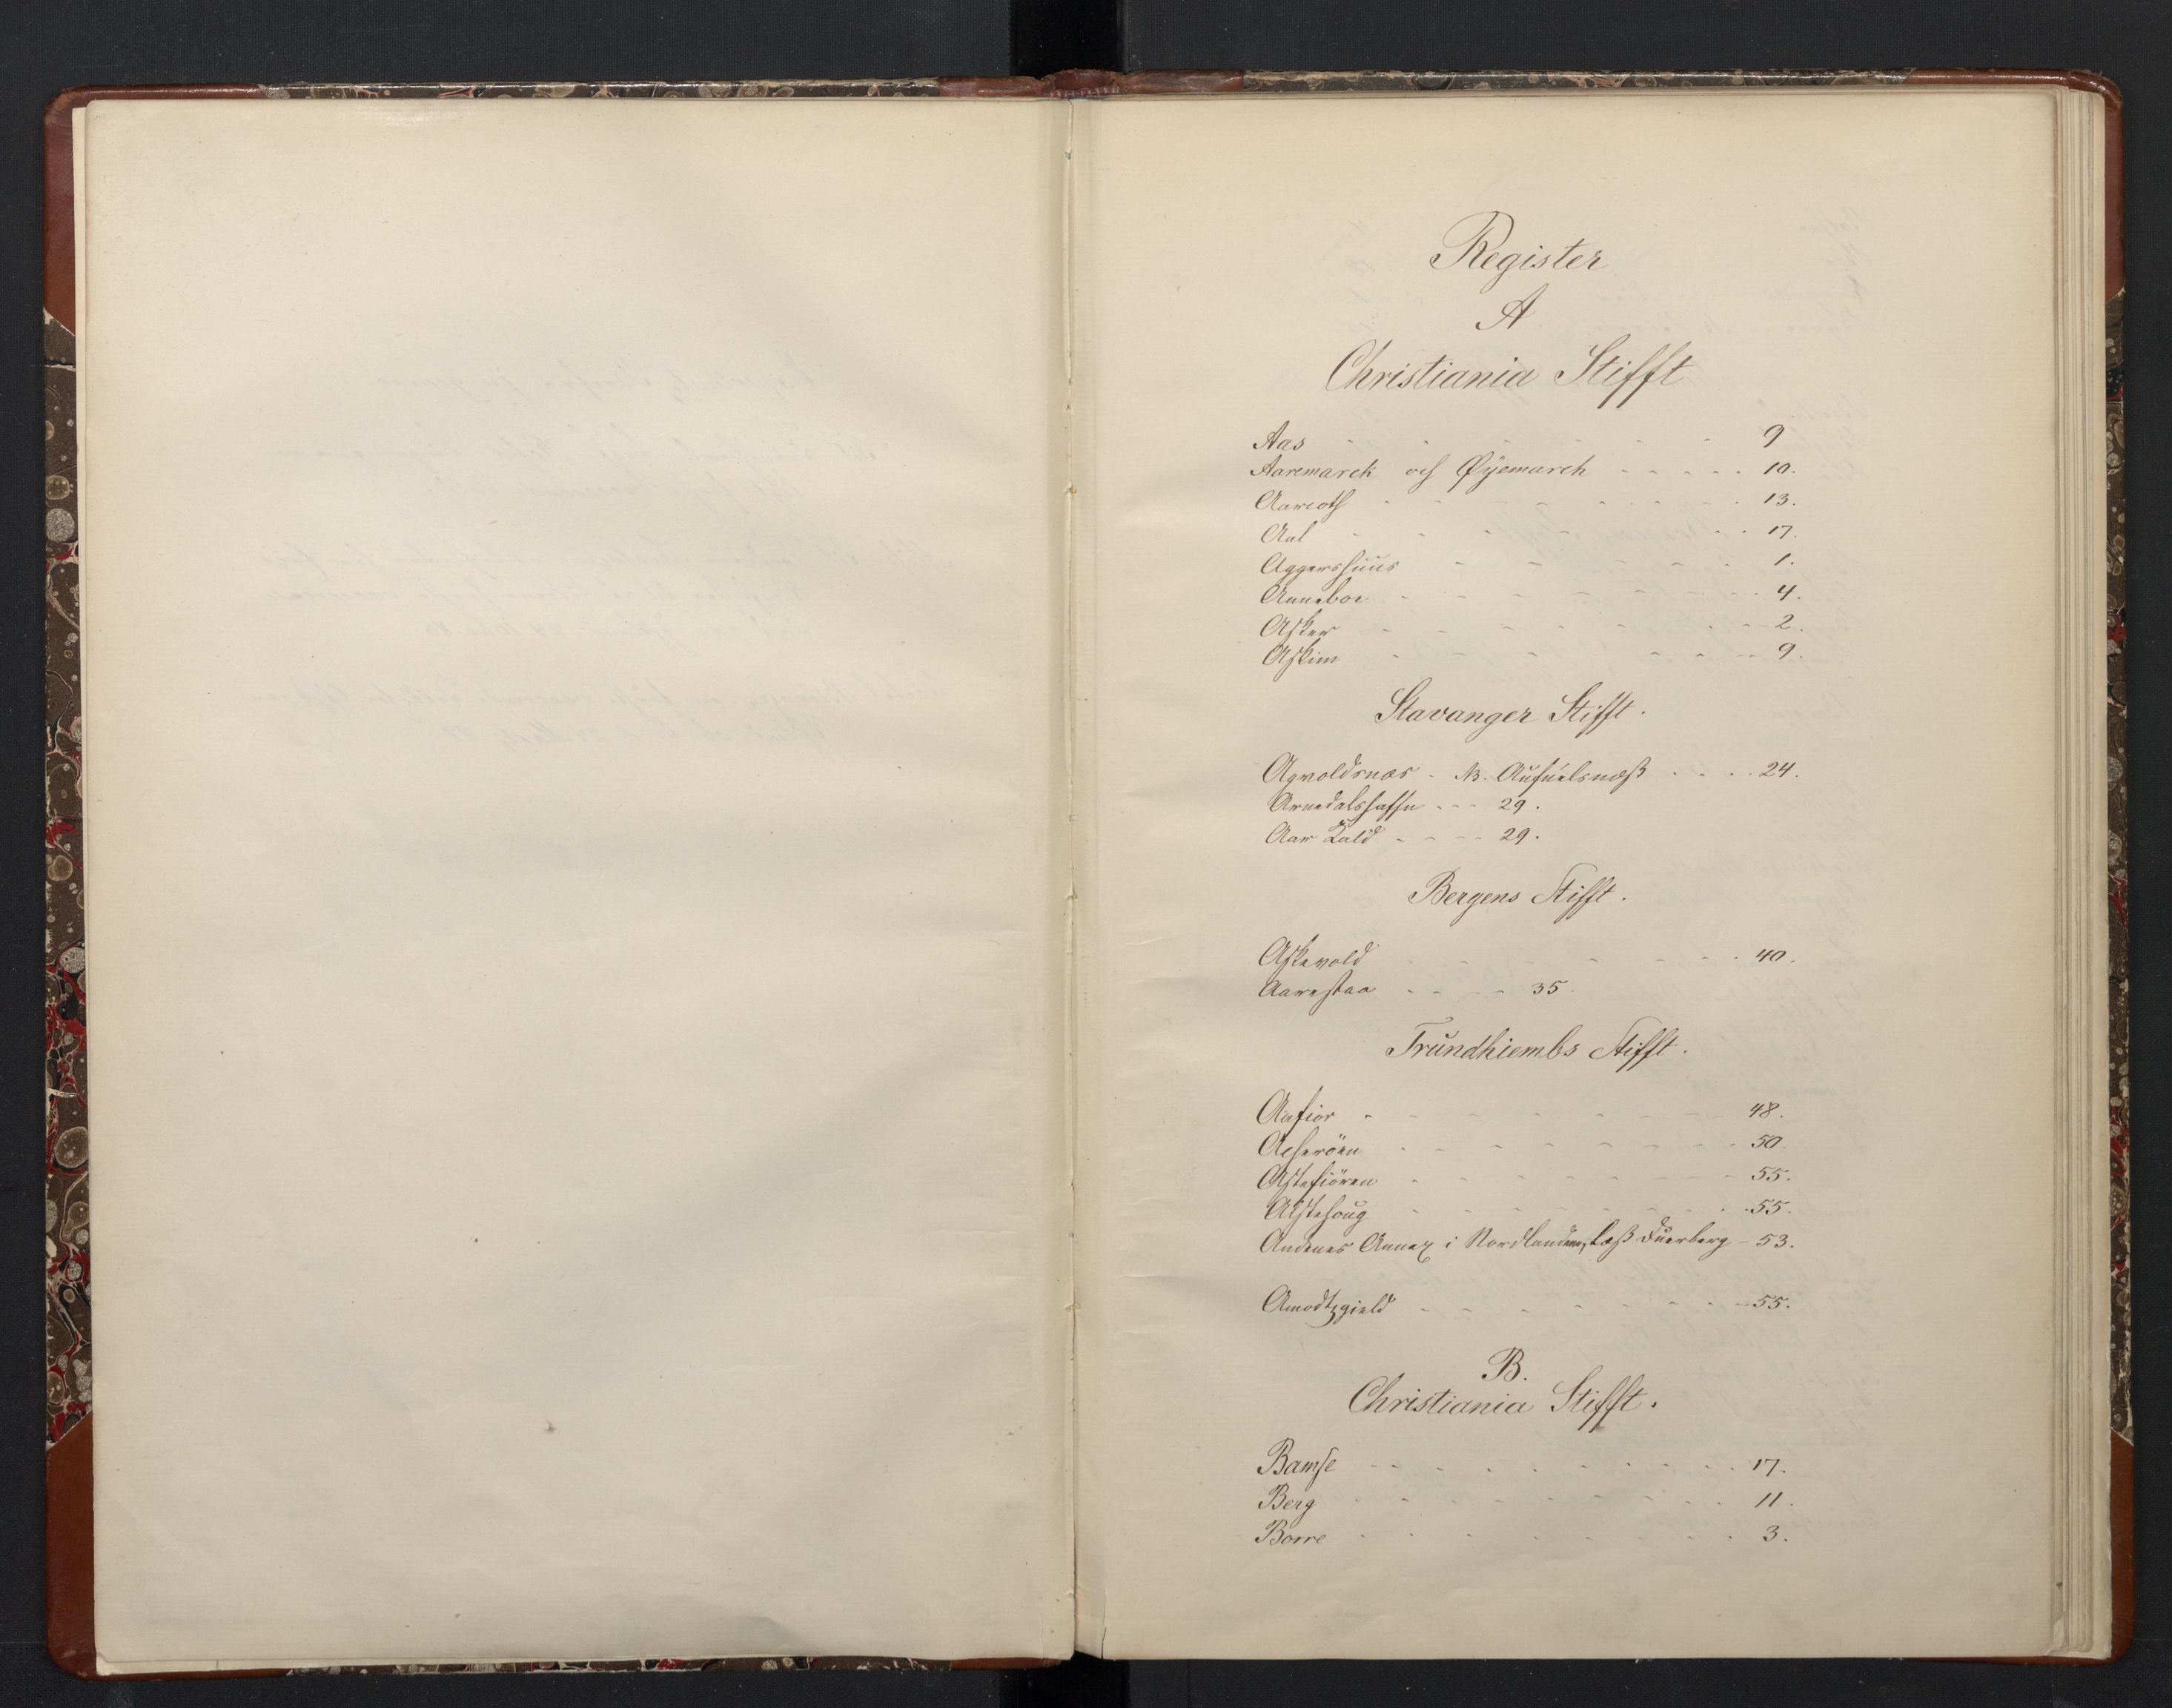 Register
A
Christiania Stifft
Aas - - - - - - 9
Aaremarck och Øÿemarch - - - - - 10.
Aarroth - - - - - - - - 13.
Aal - - - - - - - 17.
Aggershuus - - - - - - 1.
Annebor - - - - - - - - 4.
Asker - - - - - - - 2.
Askim - - - - - - - - 9.
Stavanger Stifft.
Agvoldsnæs. NB. Aufuelsnæss . . . . 24.
Arnedalshassn - - - 29.
Aar Kald - - - - 29.
Bergens Stifft.
Askevold - - - - - - - 40.
Aarestaa - - - - 35.
Trundhiembs Stifft.
Aafior - - - - - - - - 48.
Acheröen - - - - - - - - 50.
Astefiören - - - - - - - 55.
Alstehoug - - - - - - - 55.
Andenes Annex i Nordlanden, læss Duerberg - 53.
Amodtzgield - - - - - - - 55.
B.
Christiania Stifft.
Bamse - - - - - - - - 17.
Berg - - - - - - - - 11.
Borre - - - - - - - 3.